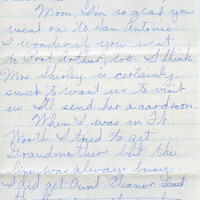 Mom, I'm so glad you
went on to San Antonio.
I wonder if you went
to Port Arthur, too. I think
Mrs. Shirley is certainly
sweet to want us to visit
us. I'll send her a card soon.
When I was in Ft.
Worth I tried to get
Grandmother but the
line was always busy.
I did get Aunt Eleanor